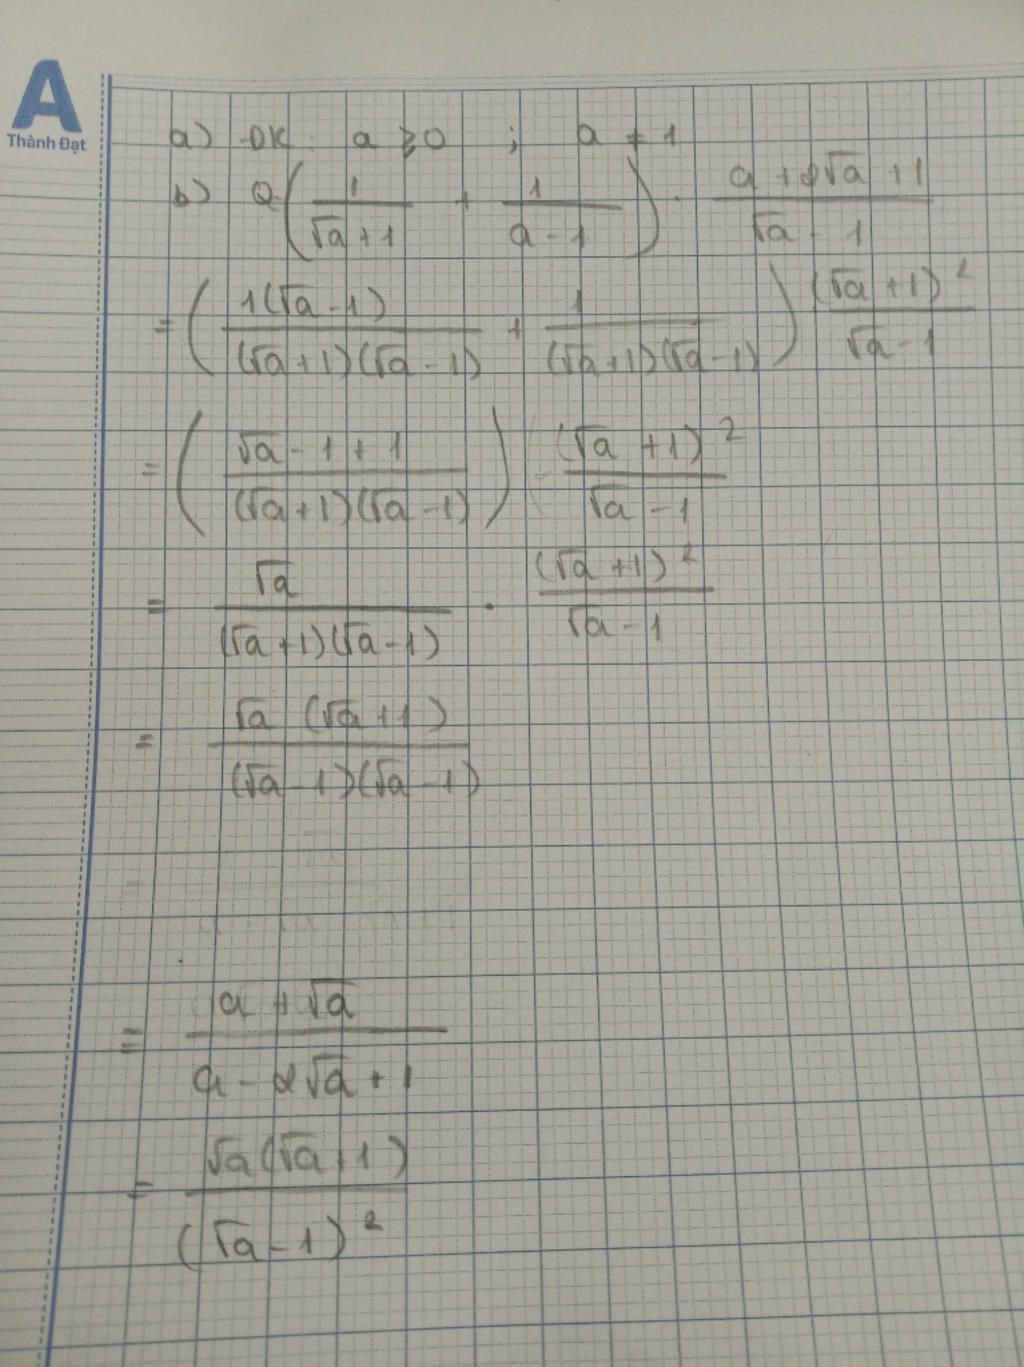 A
Thành Đạt
a) ĐK: a ≥ 0 ; a ≠ 1
b) Q = (1/(√a + 1) + 1/(a - 1)) · (a + 2√a + 1)/(√a - 1)
= (1(√a - 1)/((√a + 1)(√a - 1)) + 1/((√a + 1)(√a - 1))) (√a + 1)²/(√a - 1)
= ((√a - 1 + 1)/((√a + 1)(√a - 1))) · (√a + 1)²/(√a - 1)
= √a/((√a + 1)(√a - 1)) · (√a + 1)²/(√a - 1)
= √a (√a + 1)/((√a - 1)(√a - 1))
= (a + √a)/(a - 2√a + 1)
= √a(√a + 1)/(√a - 1)²